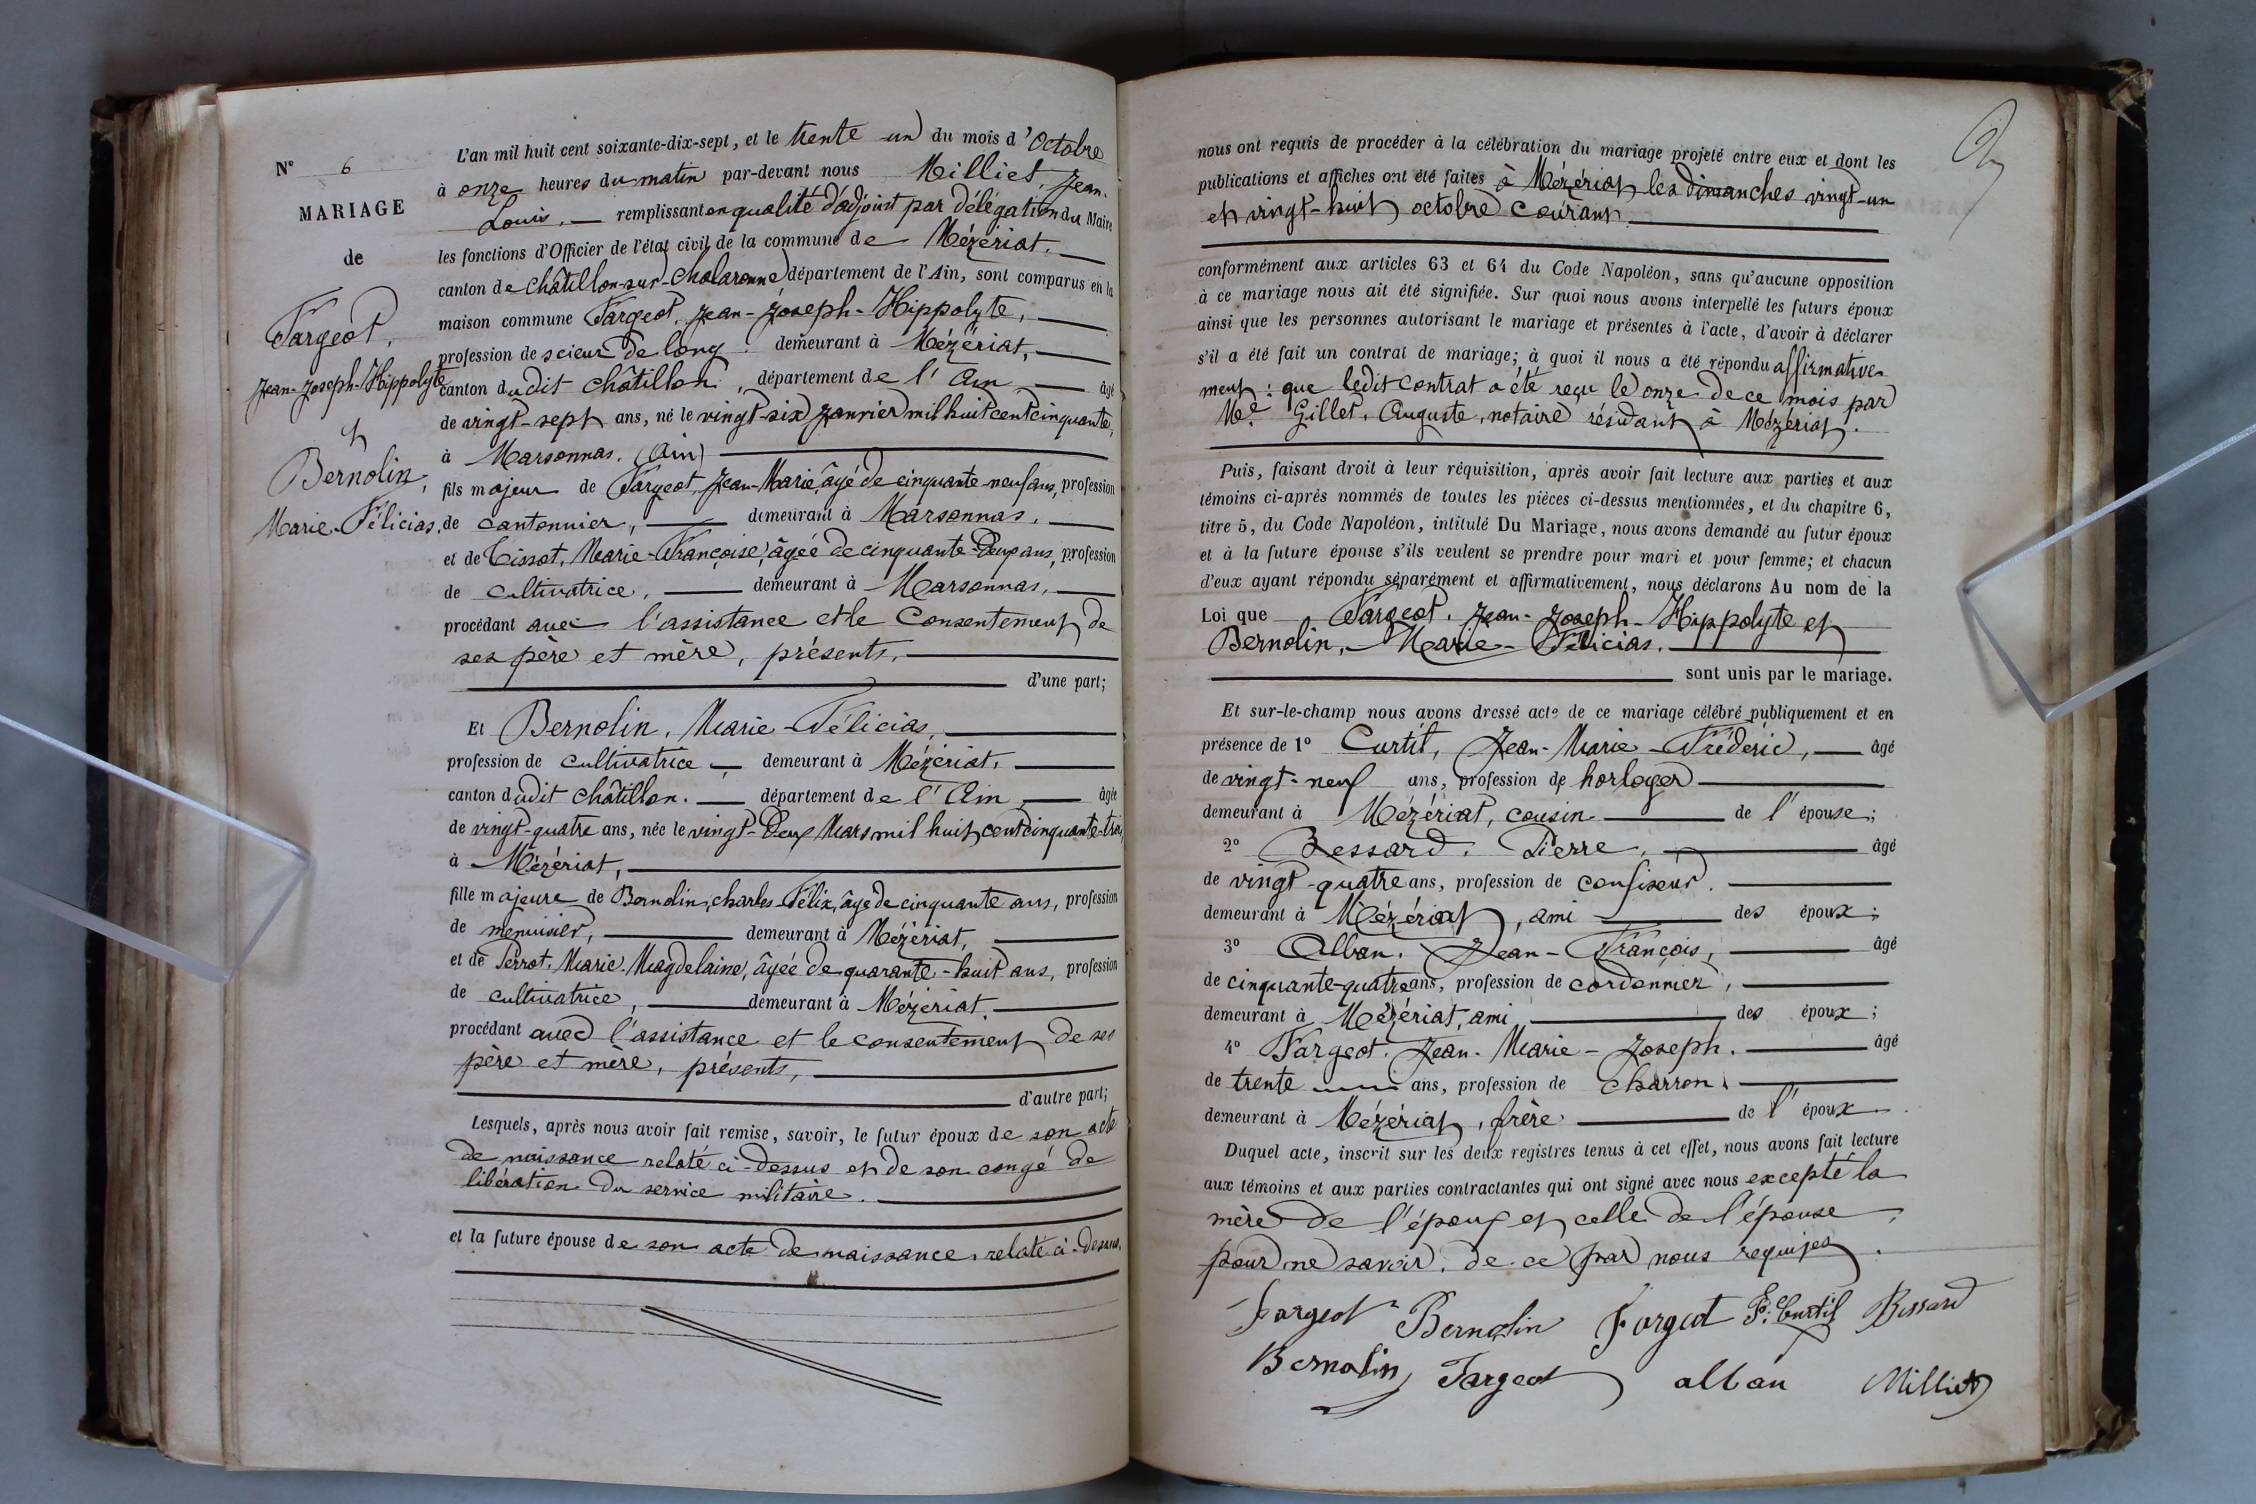 N° 6
MARIAGE
de
Fargeot,
Jean-Joseph-Hippolyte
et
Bernolin,
Marie-Félicias.
L'an mil huit cent soixante-dix-sept, et le trente un du mois d'Octobre
à onze heures du matin par-devant nous Milliet, Jean-
Louis, remplissant en qualité d'adjoint par délégation du Maire
les fonctions d'Officier de l'état civil de la commune de Mézériat,
canton de Châtillon-sur-Chalaronne département de l'Ain, sont comparus en la
maison commune Fargeot, Jean-Joseph-Hippolyte,
profession de scieur de long, demeurant à Mézériat,
canton dudit Châtillon, département de l'Ain âgé
de vingt-sept ans, né le vingt-six janvier mil huit cent cinquante,
à Marsonnas, (Ain)
fils majeur de Fargeot, Jean-Marie, âgé de cinquante-neuf ans, profession
de cantonnier, demeurant à Marsonnas,
et de Tissot, Marie-Françoise, âgée de cinquante-deux ans, profession
de cultivatrice, demeurant à Marsonnas,
procédant avec l'assistance et le consentement de
ses père et mère, présents,
d'une part;
Et Bernolin, Marie-Félicias,
profession de cultivatrice, demeurant à Mézériat,
canton dudit Châtillon, département de l'Ain âgée
de vingt-quatre ans, née le vingt-deux Mars mil huit cent cinquante-trois
à Mézériat,
fille majeure de Bernolin, Charles-Félix, âgé de cinquante ans, profession
de menuisier, demeurant à Mézériat,
et de Perrot, Marie-Magdelaine, âgée de quarante-huit ans, profession
de cultivatrice, demeurant à Mézériat,
procédant avec l'assistance et le consentement de ses
père et mère, présents,
d'autre part;
Lesquels, après nous avoir fait remise, savoir, le futur époux de son acte
de naissance relaté ci-dessus et de son congé de
libération du service militaire.
et la future épouse de son acte de naissance, relaté ci-dessus.
nous ont requis de procéder à la célébration du mariage projeté entre eux et dont les
publications et affiches ont été faites à Mézériat les dimanches vingt-un
et vingt-huit octobre courant
conformément aux articles 63 et 64 du Code Napoléon, sans qu'aucune opposition
à ce mariage nous ait été signifiée. Sur quoi nous avons interpellé les futurs époux
ainsi que les personnes autorisant le mariage et présentes à l'acte, d'avoir à déclarer
s'il a été fait un contrat de mariage; à quoi il nous a été répondu affirmative-
ment: que ledit contrat a été reçu le onze de ce mois par
Me Gillet, Auguste, notaire résidant à Mézériat.
Puis, faisant droit à leur réquisition, après avoir fait lecture aux parties et aux
témoins ci-après nommés de toutes les pièces ci-dessus mentionnées, et du chapitre 6,
titre 5, du Code Napoléon, intitulé Du Mariage, nous avons demandé au futur époux
et à la future épouse s'ils veulent se prendre pour mari et pour femme; et chacun
d'eux ayant répondu séparément et affirmativement, nous déclarons Au nom de la
Loi que Fargeot, Jean-Joseph-Hippolyte et
Bernolin, Marie-Félicias.
sont unis par le mariage.
Et sur-le-champ nous avons dressé acte de ce mariage célébré publiquement et en
présence de 1° Curtil, Jean-Marie-Fréderic, âgé
de vingt-neuf ans, profession de horloger
demeurant à Mézériat, cousin de l'épouse;
2° Bessard, Pierre, âgé
de vingt-quatre ans, profession de confiseur.
demeurant à Mézériat, ami des époux;
3° Alban, Jean-François, âgé
de cinquante-quatre ans, profession de cordonnier,
demeurant à Mézériat, ami des époux;
4° Fargeot, Jean-Marie-Joseph. âgé
de trente ans, profession de charron,
demeurant à Mézériat, frère de l'époux.
Duquel acte, inscrit sur les deux registres tenus à cet effet, nous avons fait lecture
aux témoins et aux parties contractantes qui ont signé avec nous excepté la
mère de l'époux et celle de l'épouse,
pour ne savoir, de ce par nous requises.
Fargeot Bernolin Fargeot F. Curtil Bessard
Bernolin Fargeot alban Milliet